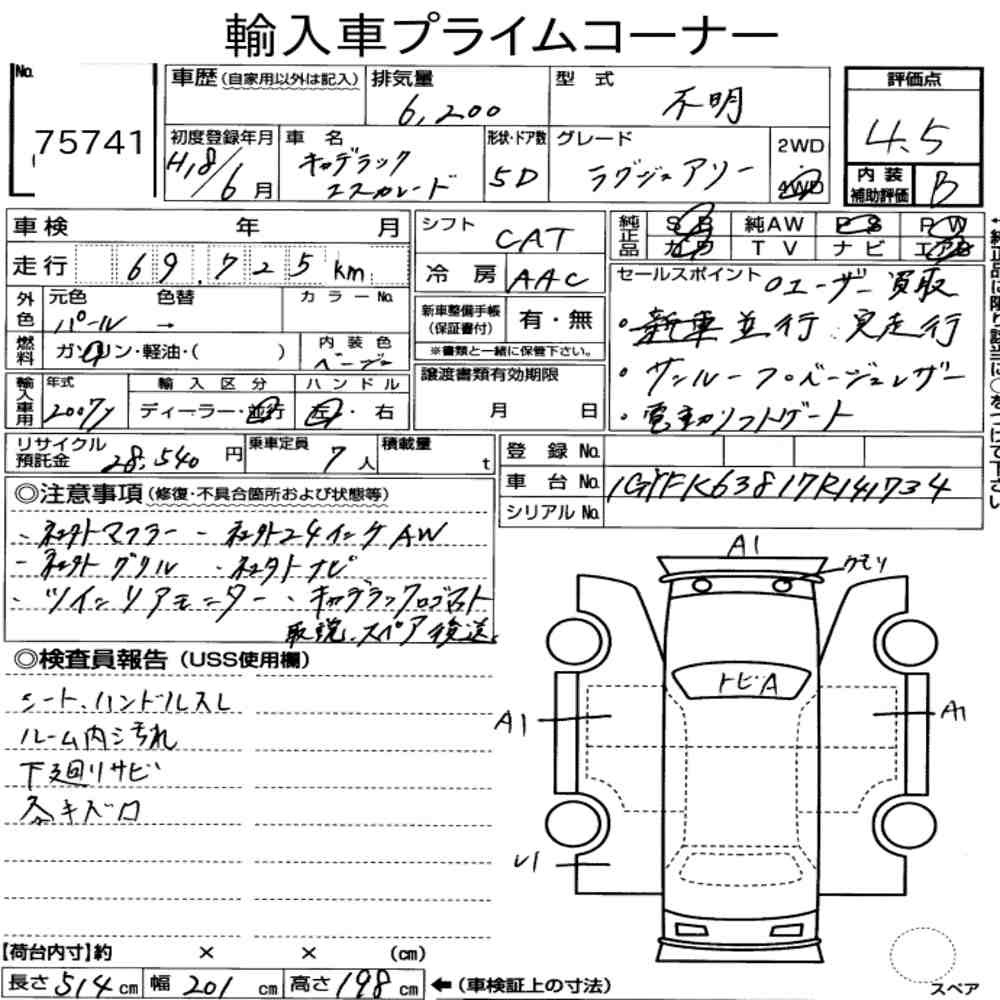 輸入車プライムコーナー
No.
75741
車歴(自家用以外は記入)
排気量
6,200
型式
不明
評価点
4.5
初度登録年月
H18/6月
車名
キャデラック
エスカレード
形状・ドア数
5D
グレード
ラグジュアリー
2WD
4WD
内装
補助評価
B
車検 年 月
シフト
CAT
純正品
SR 純AW PS PW
カワ TV ナビ エアB
走行 69,725km
冷房 AAC
外色
元色 色替 カラーNo.
パール →
新車整備手帳
(保証書付)
有・無
※書類と一緒に保管下さい。
燃料
ガソリン・軽油・( )
内装色
ベージュ
輸入車用
年式
2007y
輸入区分
ディーラー・並行
ハンドル
左・右
譲渡書類有効期限
月 日
セールスポイント
○ユーザー買取
・新車並行・実走行
・サンルーフ・ベージュレザー
・電動リフトゲート
リサイクル
預託金
28,540円
乗車定員
7人
積載量
t
登録No.
車台No. 1GYFK63817R141734
シリアルNo.
◎注意事項(修復・不具合箇所および状態等)
・社外マフラー ・社外24インチAW
・社外グリル ・社外ナビ
・ツインリアモニター ・キャデラックロゴマスト
取説、スペア後送
◎検査員報告(USS使用欄)
シート、ハンドルスレ
ルーム内シ汚れ
下廻リサビ
各キズ凹
A1
クモリ
トビA
A1
A1
U1
【荷台内寸】約 × × (cm)
長さ514cm 幅201cm 高さ198cm
←(車検証上の寸法)
スペア